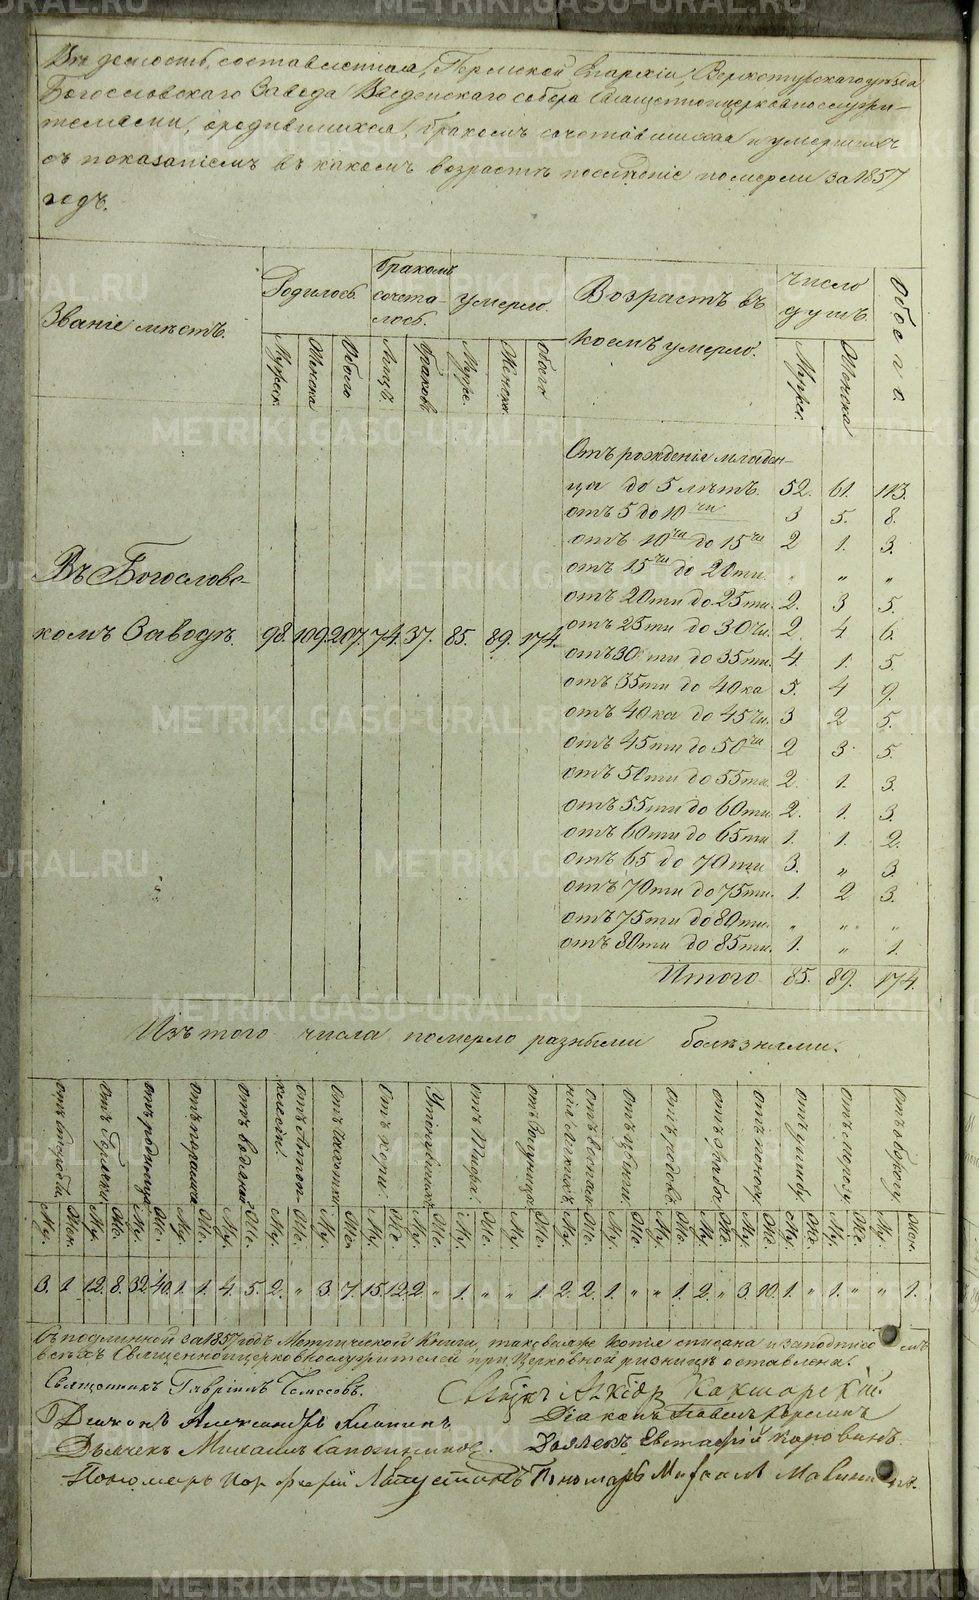 Вѣдомость, составленная, Пермской Епархіи, Верхотурскаго уѣзда
Богословскаго Завода Введенскаго собора Священноцерковнослужи-
телями, о родившихся, бракомъ сочетавшихся и умершихъ
съ показаніемъ въ какомъ возрастѣ послѣдніе померли за 1857
годъ.
Званіе мѣстъ.
Родилось.
Бракомъ сочета-лось.
умерло.
Возрастъ въ коемъ умерло.
Число душъ.
Обоего.
Мужес.
Женска
Обоего
Лицъ.
браковъ
Муже.
Женска.
обоего
Мужес.
Женска
Отъ рожденія младен-
ца до 5 лѣтъ. 52. 61. 113.
отъ 5 до 10ти 3 5. 8.
отъ 10ти до 15ти 2 1. 3.
отъ 15ти до 20ти. „ „ „
отъ 20ти до 25ти. 2. 3 5.
отъ 25ти до 30ти. 2. 4 6.
отъ 30ти до 35ти. 4. 1. 5.
отъ 35ти до 40ка 5. 4 9.
отъ 40ка до 45ти. 3 2 5.
отъ 45ти до 50ти 2 3. 5.
отъ 50ти до 55ти. 2. 1. 3.
отъ 55ти до 60ти. 2. 1. 3.
отъ 60ти до 65ти 1. 1. 2.
отъ 65 до 70ти 3. „ 3.
отъ 70ти до 75ти. 1. 2 3.
отъ 75ти до 80ти. „ „ „
отъ 80ти до 85ти. 1. „ 1.
Итого 85. 89. 174.
Въ Богословс-
комъ Заводѣ. 98. 109. 207. 74. 37. 85. 89. 174.
Изъ того числа померло разными болѣзнями.
отъ старости.
отъ Горячки
отъ родимца
отъ поноса
отъ водяной
отъ чахотки
отъ кори.
Утонувшихъ
отъ родовъ
отъ ушибу.
отъ морозу.
отъ обжогу.
3. 1 12. 8. 32 40. 1. 1. 4. 5. 2. „ 3 7. 15. 12. 2. „ 1. „ „ 1. 2. 2. 1. „ „ 1. 2. „ 3. 10. 1. „ 1. „ „ 1.
Съ подлинной за 1857 годъ Метрической Книги, таковая же копія списана и за подписомъ
всѣхъ Священноцерковнослужителей при Церковной ризницѣ оставлена.
Священникъ Гавріилъ
Діаконъ Александръ
Дьячекъ Михаилъ Сапожниковъ.
Пономарь Порфирій
Діаконъ Павелъ
Дьячекъ Евстафій Коровинъ
Пономарь Михаилъ
METRIKI.GASO-URAL.RU